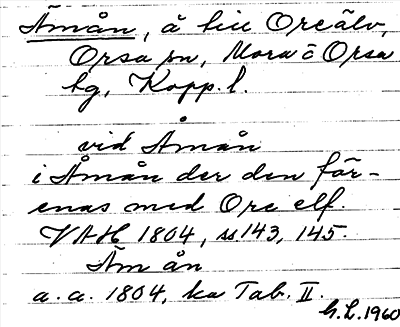 Ämån, å till Oreälv,
Orsa sn, Mora o Orsa
tg, Kopp. l.
vid Åmån
i Åmån der den för-
enas med Ore elf.
VAH 1804, ss 143, 145.
Äm ån
a. a. 1804, ka Tab. II.
G. L. 1960